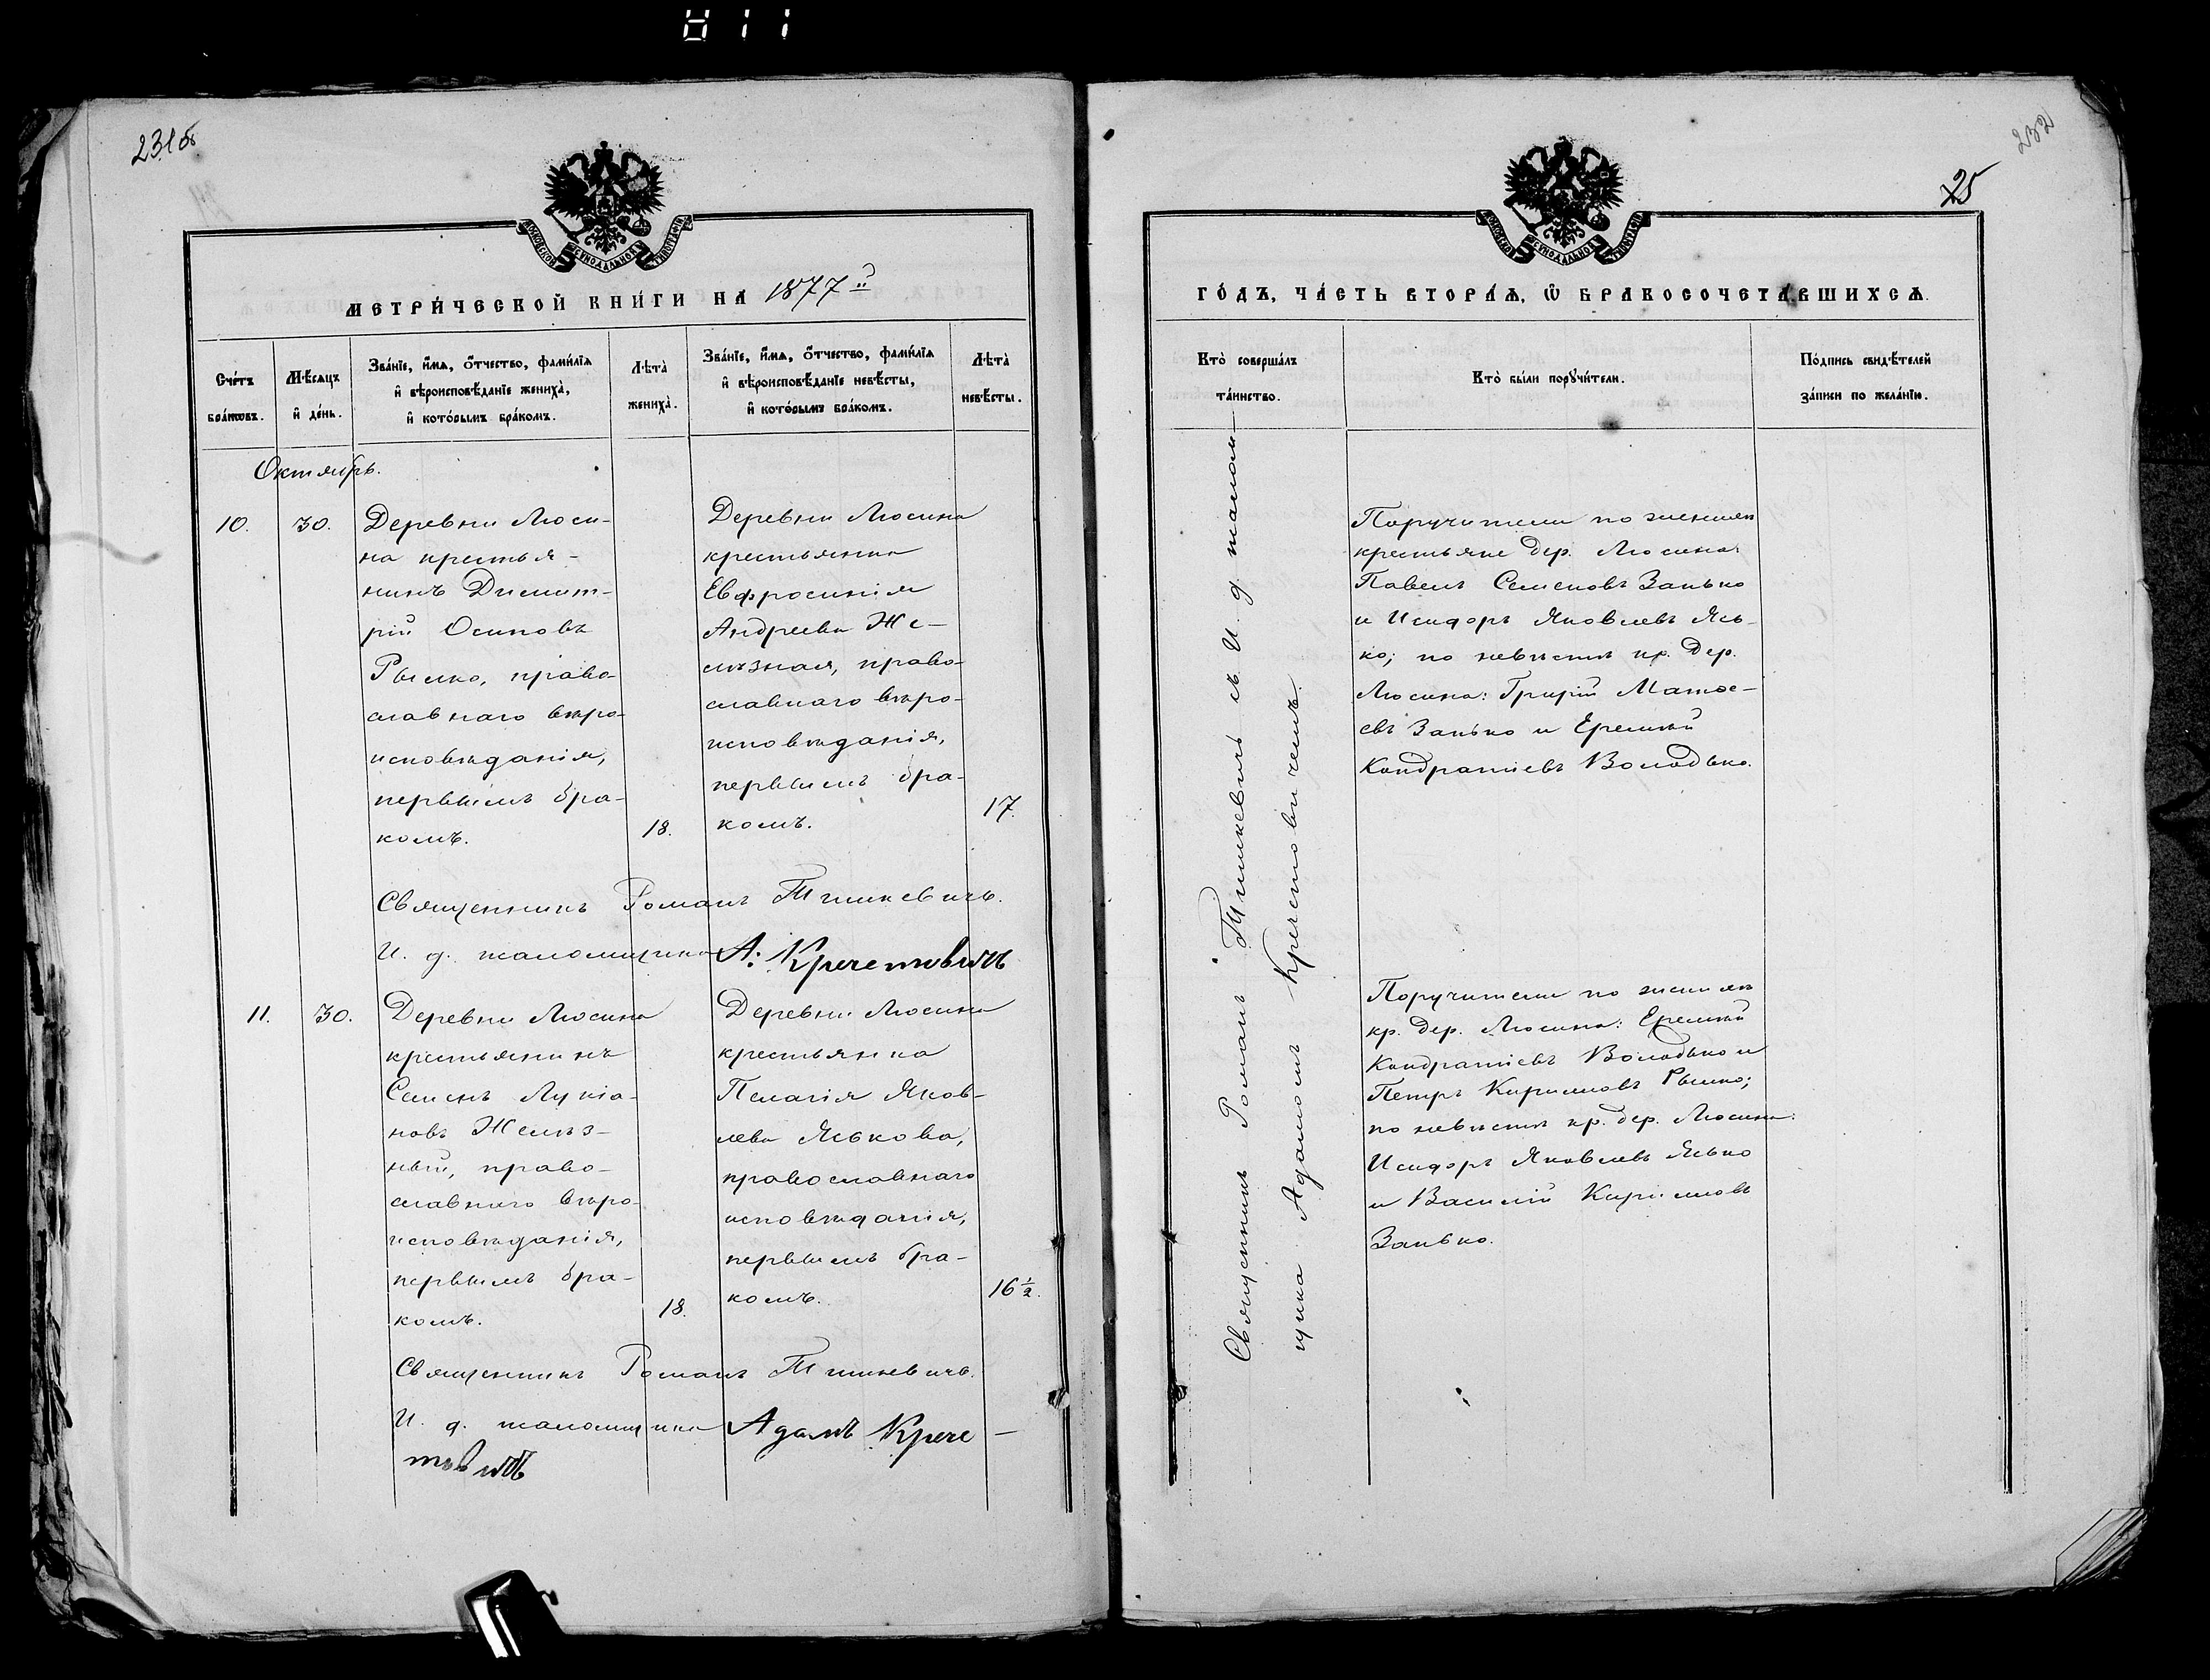 231б
МОСКОВСКОЙ СѴНОДАЛЬНОЙ ТИПОГРАФІИ
МЕТРИ́ЧЕСКОЙ КНИ́ГИ НА 1877й
Сче́тъ бра́ковъ.
Мѣ́сяцъ и҆ де́нь.
Зва́нїе, и҆́мѧ, ѻ҆́тчество, фами́лїѧ
и҆ вѣроисповѣ́данїе жениха̀,
и҆ кото́рымъ бра́комъ.
Лѣта̀ жениха̀.
Зва́нїе, и҆́мѧ, ѻ҆́тчество, фами́лїѧ
и҆ вѣроисповѣ́данїе невѣ́сты,
и҆ кото́рымъ бра́комъ.
Лѣта̀ невѣ́сты.
Октябрь.
10.
30.
Деревни Люси-
на крестья-
нинъ Димит-
рій Осиповъ
Рылко, право-
славнаго вѣро-
исповѣданія,
первымъ бра-
комъ.
18.
Деревни Люсина
крестьянка
Евфросинія
Андреева Же-
лѣзная, право-
славнаго вѣро-
исповѣданія,
первымъ бра-
комъ.
17.
Священникъ Романъ Тишкевичъ.
И. д. псаломщика А: Кречетовичъ
11.
30.
Деревни Люсина
крестьянинъ
Семенъ Лукіа-
новъ Желѣз-
ный, право-
славнаго вѣро-
исповѣданія,
первымъ бра-
комъ.
18.
Деревни Люсина
крестьянка
Пелагія Яков-
лева Яськова,
православнаго
исповѣданія,
первымъ бра-
комъ.
16 1/2.
Священникъ Романъ Тишкевичъ.
И. д. псаломщика Адамъ Крече-
товичъ
232
25
МОСКОВСКОЙ СѴНОДАЛЬНОЙ ТИПОГРАФІИ
ГО́ДЪ, ЧА́СТЬ ВТОРА́Ѧ, Ѽ БРАКОСОЧЕТА́ВШИХСѦ.
Кто̀ соверша́лъ
та́инство.
Кто̀ бы́ли порꙋчи́тели.
По́дпись свидѣ́телей
за́писи по жела́нїю.
Священникъ Романъ Тишкевичъ съ И. д. псалом-
щика Адамомъ Кречетовичемъ.
Поручители по женихѣ
крестьяне дер. Люсина:
Павелъ Семеновъ Занько
и Исидоръ Яковлевъ Ясь-
ко; по невѣстѣ кр. дер.
Люсина: Григрій Матѳе-
евъ Занько и Еремѣй
Кондратіевъ Володько.
Поручители по женихѣ
кр. дер. Люсина: Еремѣй
Кондратіевъ Володько и
Петръ Кирилловъ Рылко;
по невѣстѣ кр. дер. Люсина:
Исидоръ Яковлевъ Ясько
и Василій Кирилловъ
Занько.